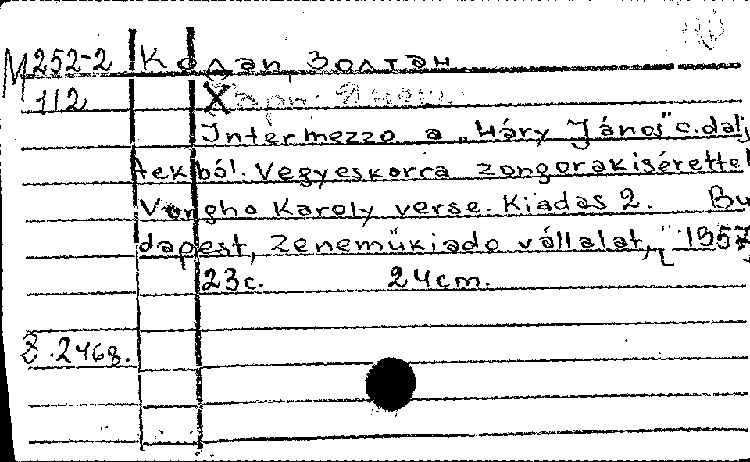 M 252-2 Кодап, Золтан
112 X
Intermezzo a „Háry János" c. dalj
tekból. Vegyeskorra zongorakisérettel
Vargho Karoly verse. Kiadás 2. Bu
dapest, Zeneműkiado vállalat, [1957
23c. 24cm.
8.2468.